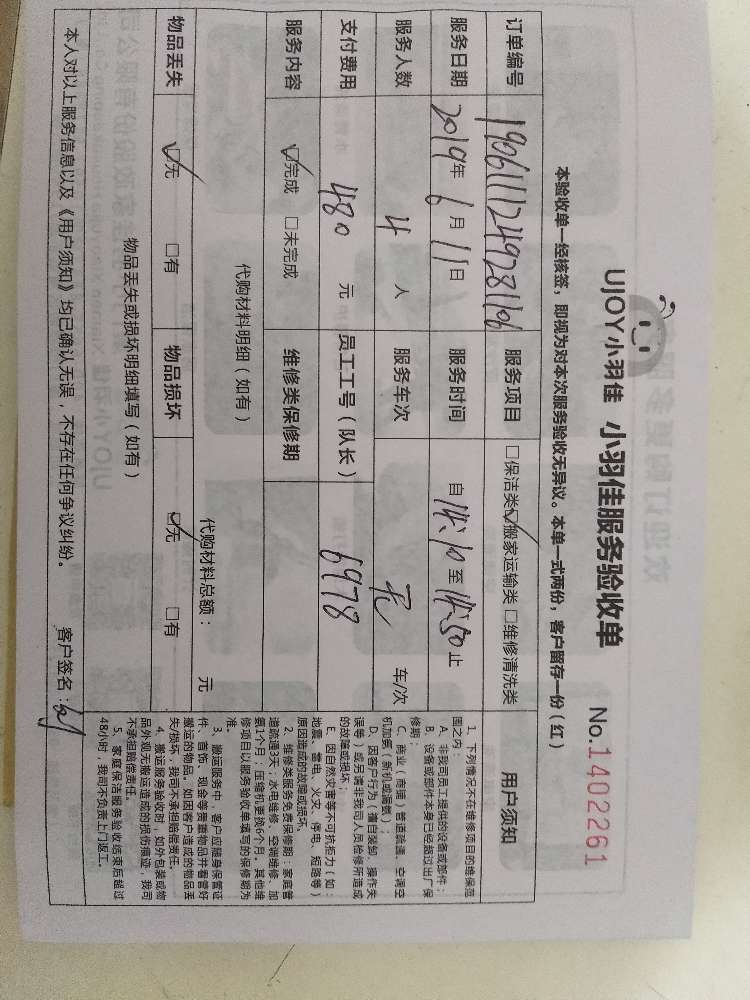 UJOY小羽佳 小羽佳服务验收单 No.1402261
本验收单一经核签，即视为对本次服务验收无异议。本单一式两份，客户留存一份（红）
订单编号 服务项目 □保洁类☑搬家运输类□维修清洗类
服务日期 2019年6月11日 服务时间 自 至 :50止
服务人数 4 人 服务车次 车/次
支付费用 480 元 员工工号（队长） 6978
服务内容 ☑完成 □未完成 维修类保修期
代购材料明细（如有）
代购材料总额： 元
物品丢失 ☑无 □有 物品损坏 ☑无 □有
物品丢失或损坏明细填写（如有）
本人对以上服务信息以及《用户须知》均已确认无误，不存在任何争议纠纷。 客户签名：
用户须知
1、下列情况不在维修项目的维保范
围之内：
A、非我司员工提供的设备或部件；
B、设备或部件本身已经超过出厂保
修期；
C、商业（商铺）管道疏通、空调空
机加氨（新机或漏氨）；
D、因客户行为（擅自拆卸、操作失
误等）或另请非我司人员检修所造成
的故障或损坏；
E、因自然灾害等不可抗拒力（如：
地震、雷电、火灾、停电、短路等）
原因造成的故障或损坏。
2、维修类服务免费保修期：家庭管
道疏通3天；水电维修、空调维修、加
氨1个月；压缩机更换6个月。其他维
修项目以服务验收单填写的保修期为
准。
3、搬运服务中，客户应随身保管证
件、首饰、现金等贵重物品并看管好
搬运的物品，如因客户造成的物品丢
失/损坏，我司不承担赔偿责任。
4、搬运服务验收时，如外包装或物
品外观无搬运造成的损伤痕迹，我司
不承担赔偿责任。
5、家庭保洁服务验收结束后超过
48小时，我司不负责上门返工。